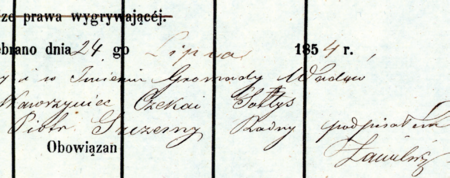 ze prawa wygrywającéj.
ebrano dnia 24 go Lipca 1854 r.
y i w Imieniu Gromady Wadów
Wawrzyniec Czekai Sołtys
Piotr Szczerny Radny podpisałem
Obowiązan